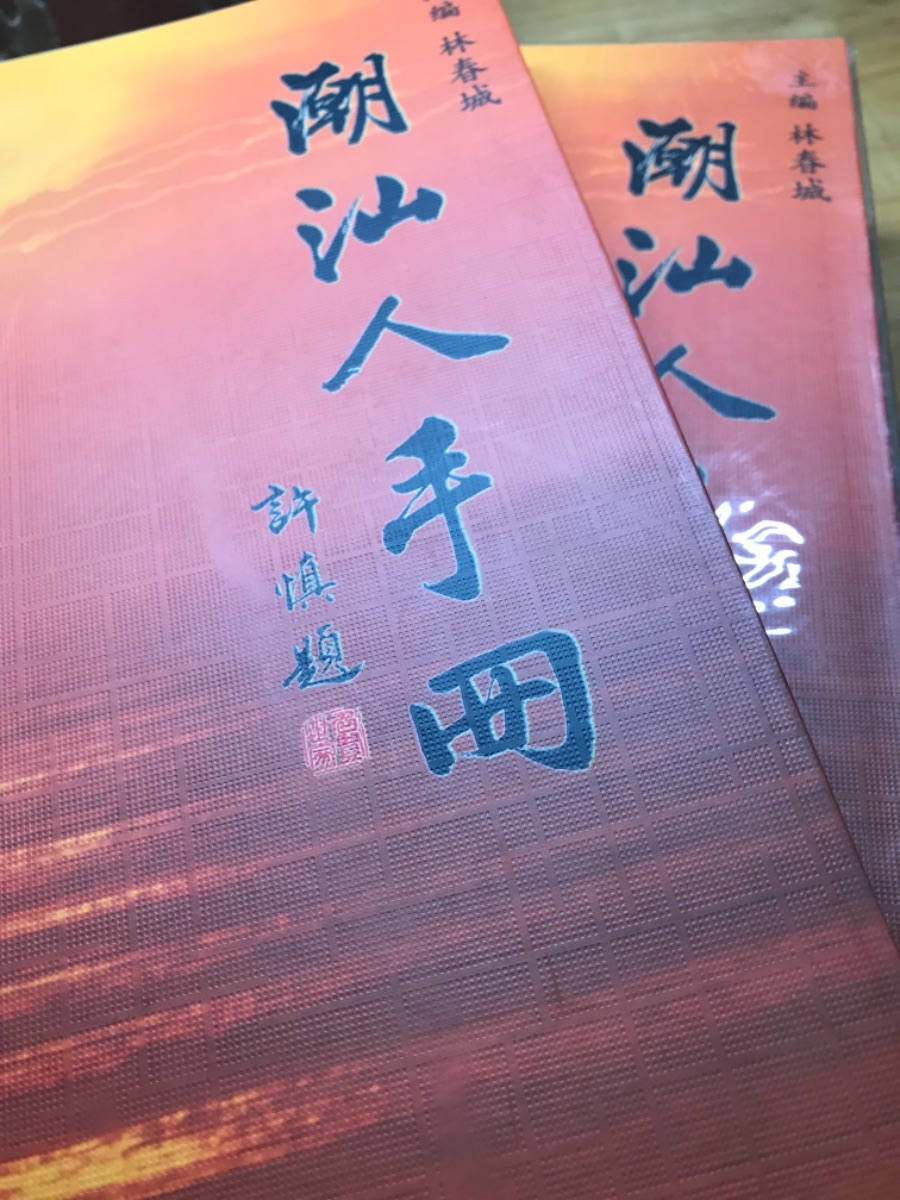 编 林春城
潮汕人手册
許慎題
主编 林春城
潮汕人